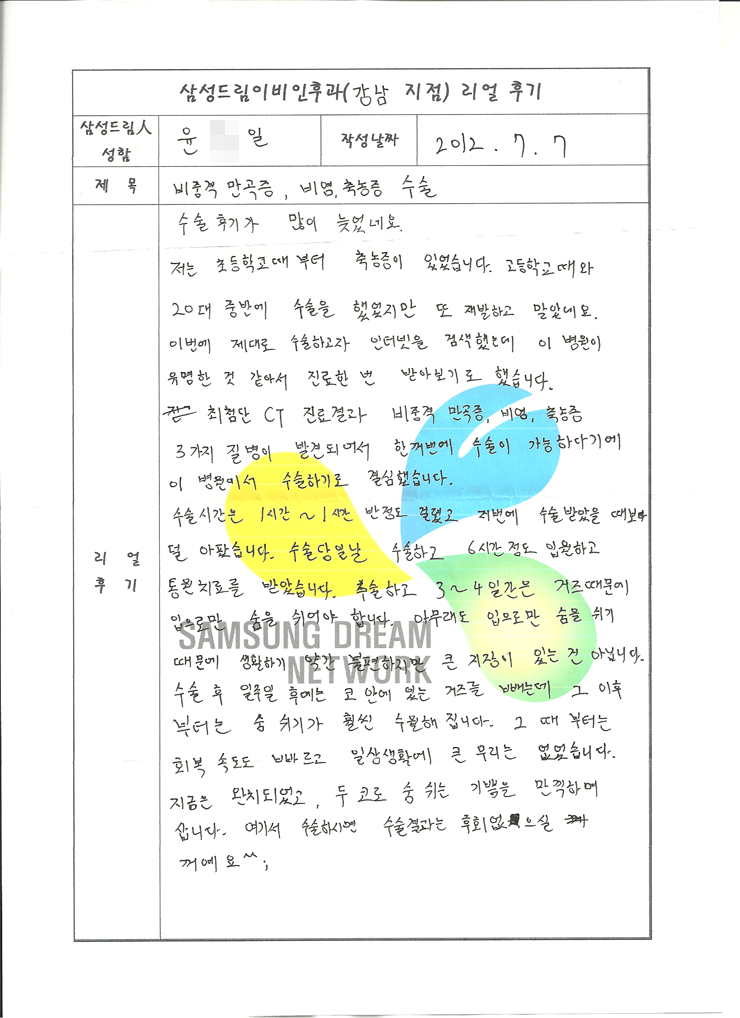 삼성드림이비인후과(강남 지점) 리얼 후기
삼성드림人 성함
윤 일
작성날짜
2012. 7. 7
제 목
비중격 만곡증, 비염, 축농증 수술
리 얼 후 기
수술 후기가 많이 늦었네요.
저는 초등학교때부터 축농증이 있었습니다. 고등학교때와
20대 중반에 수술을 했었지만 또 재발하고 말았네요.
이번에 제대로 수술하고자 인터넷을 검색했는데 이 병원이
유명한 것 같아서 진료한번 받아보기로 했습니다.
최첨단 CT 진료결과 비중격 만곡증, 비염, 축농증
3가지 질병이 발견되어서 한꺼번에 수술이 가능하다기에
이 병원에서 수술하기로 결심했습니다.
수술시간은 1시간~1시간 반정도 걸렸고 저번에 수술받았을 때보다
덜 아팠습니다. 수술당일날 수술하고 6시간정도 입원하고
통원치료를 받았습니다. 수술하고 3~4일간은 거즈때문에
입으로만 숨을 쉬어야 합니다. 아무래도 입으로만 숨을 쉬기
때문에 생활하기 약간 불편하지만 큰 지장이 있는 건 아닙니다.
수술 후 일주일 후에는 코 안에 있는 거즈를 빼는데 그 이후
부터는 숨 쉬기가 훨씬 수월해 집니다. 그 때 부터는
회복 속도도 빠르고 일상생활에 큰 무리는 없었습니다.
지금은 완치되었고, 두 코로 숨 쉬는 기쁨을 만끽하며
삽니다. 여기서 수술하시면 수술결과는 후회없으실
꺼예요^^;
SAMSUNG DREAM
NETWORK